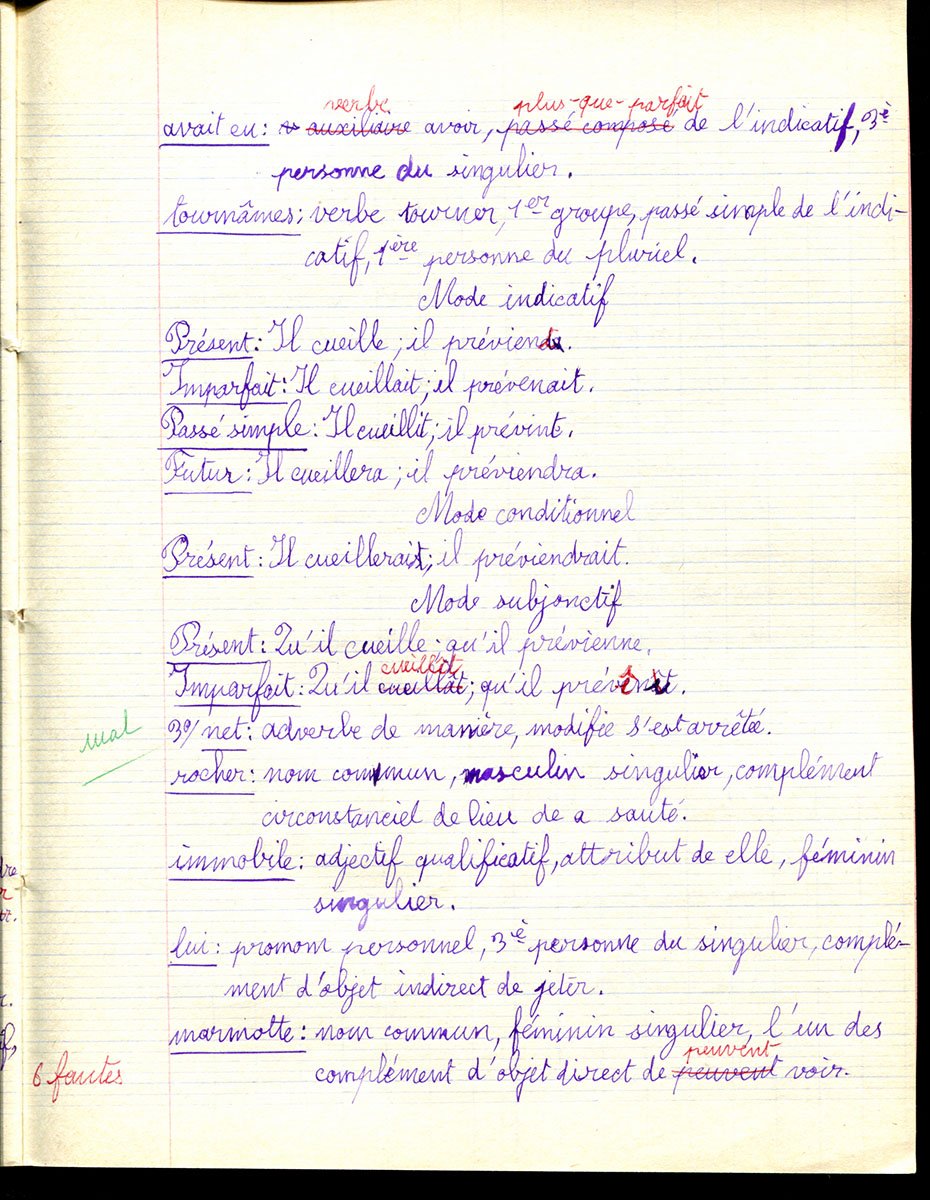 verbe plus-que-parfait
avait eu: v auxiliaire avoir, passé composé de l'indicatif, 3è
personne du singulier.
tournâmes: verbe tourner, 1er groupe, passé simple de l'indi-
catif, 1ère personne du pluriel.
Mode indicatif
Présent: Il cueille; il prévient.
Imparfait: Il cueillait; il prévenait.
Passé simple: Il cueillit; il prévint.
Futur: Il cueillera; il préviendra.
Mode conditionnel
Présent: Il cueillerait; il préviendrait.
Mode subjonctif
Présent: Qu'il cueille; qu'il prévienne.
cueillît
Imparfait: Qu'il cueillât; qu'il prévînt.
mal
3o/ net: adverbe de manière, modifie s'est arrêtée.
rocher: nom commun, masculin singulier, complément
circonstanciel de lieu de a sauté.
immobile: adjectif qualificatif, attribut de elle, féminin
singulier.
lui: pronom personnel, 3è personne du singulier, complé-
ment d'objet indirect de jeter.
marmotte: nom commun, féminin singulier, l'un des
peuvent
6 fautes
complément d'objet direct de peuvent voir.